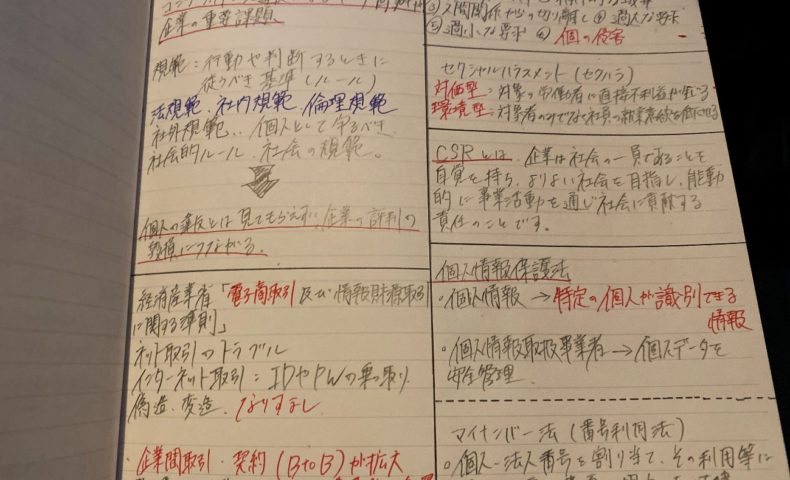 企業の重要課題
規範：行動や判断するときに
従うべき基準(ルール)
法規範、社内規範、倫理規範
社外規範‥個人として守るべき
社会的ルール、社会の規範。
個人の違反とは見てもらえず、企業の評判の
毀損につながる。
経済産業省「電子商取引及び情報財取引
に関する準則」
ネット取引のトラブル
インターネット取引：IDやPWの乗っ取り
偽造、変造、なりすまし
企業間取引・契約(BtoB)が拡大
③人間関係からの切り離し ④過大な要求
⑤過小な要求 ⑥個の侵害
セクシャルハラスメント(セクハラ)
対価型：対象の労働者に直接不利益が生じる
環境型：対象者のみでなく社員の就業意欲を低下させる
CSRとは、企業は社会の一員であることを
自覚を持ち、よりよい社会を目指し、能動
的に事業活動を通じ社会に貢献する
責任のことです。
個人情報保護法
・個人情報 → 特定の個人が識別できる
情報
・個人情報取扱事業者→個人データを
安全管理
マイナンバー法(番号利用法)
・個人・法人番号を割り当て、その利用等に